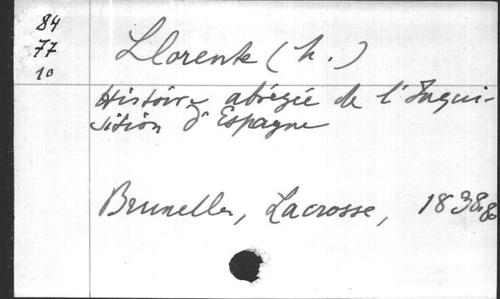 84
77
10
Llorente (h.)
Histoire abrégée de l'Inqui-
sition d'Espagne
Bruxelles, Lacrosse, 1838. 8o